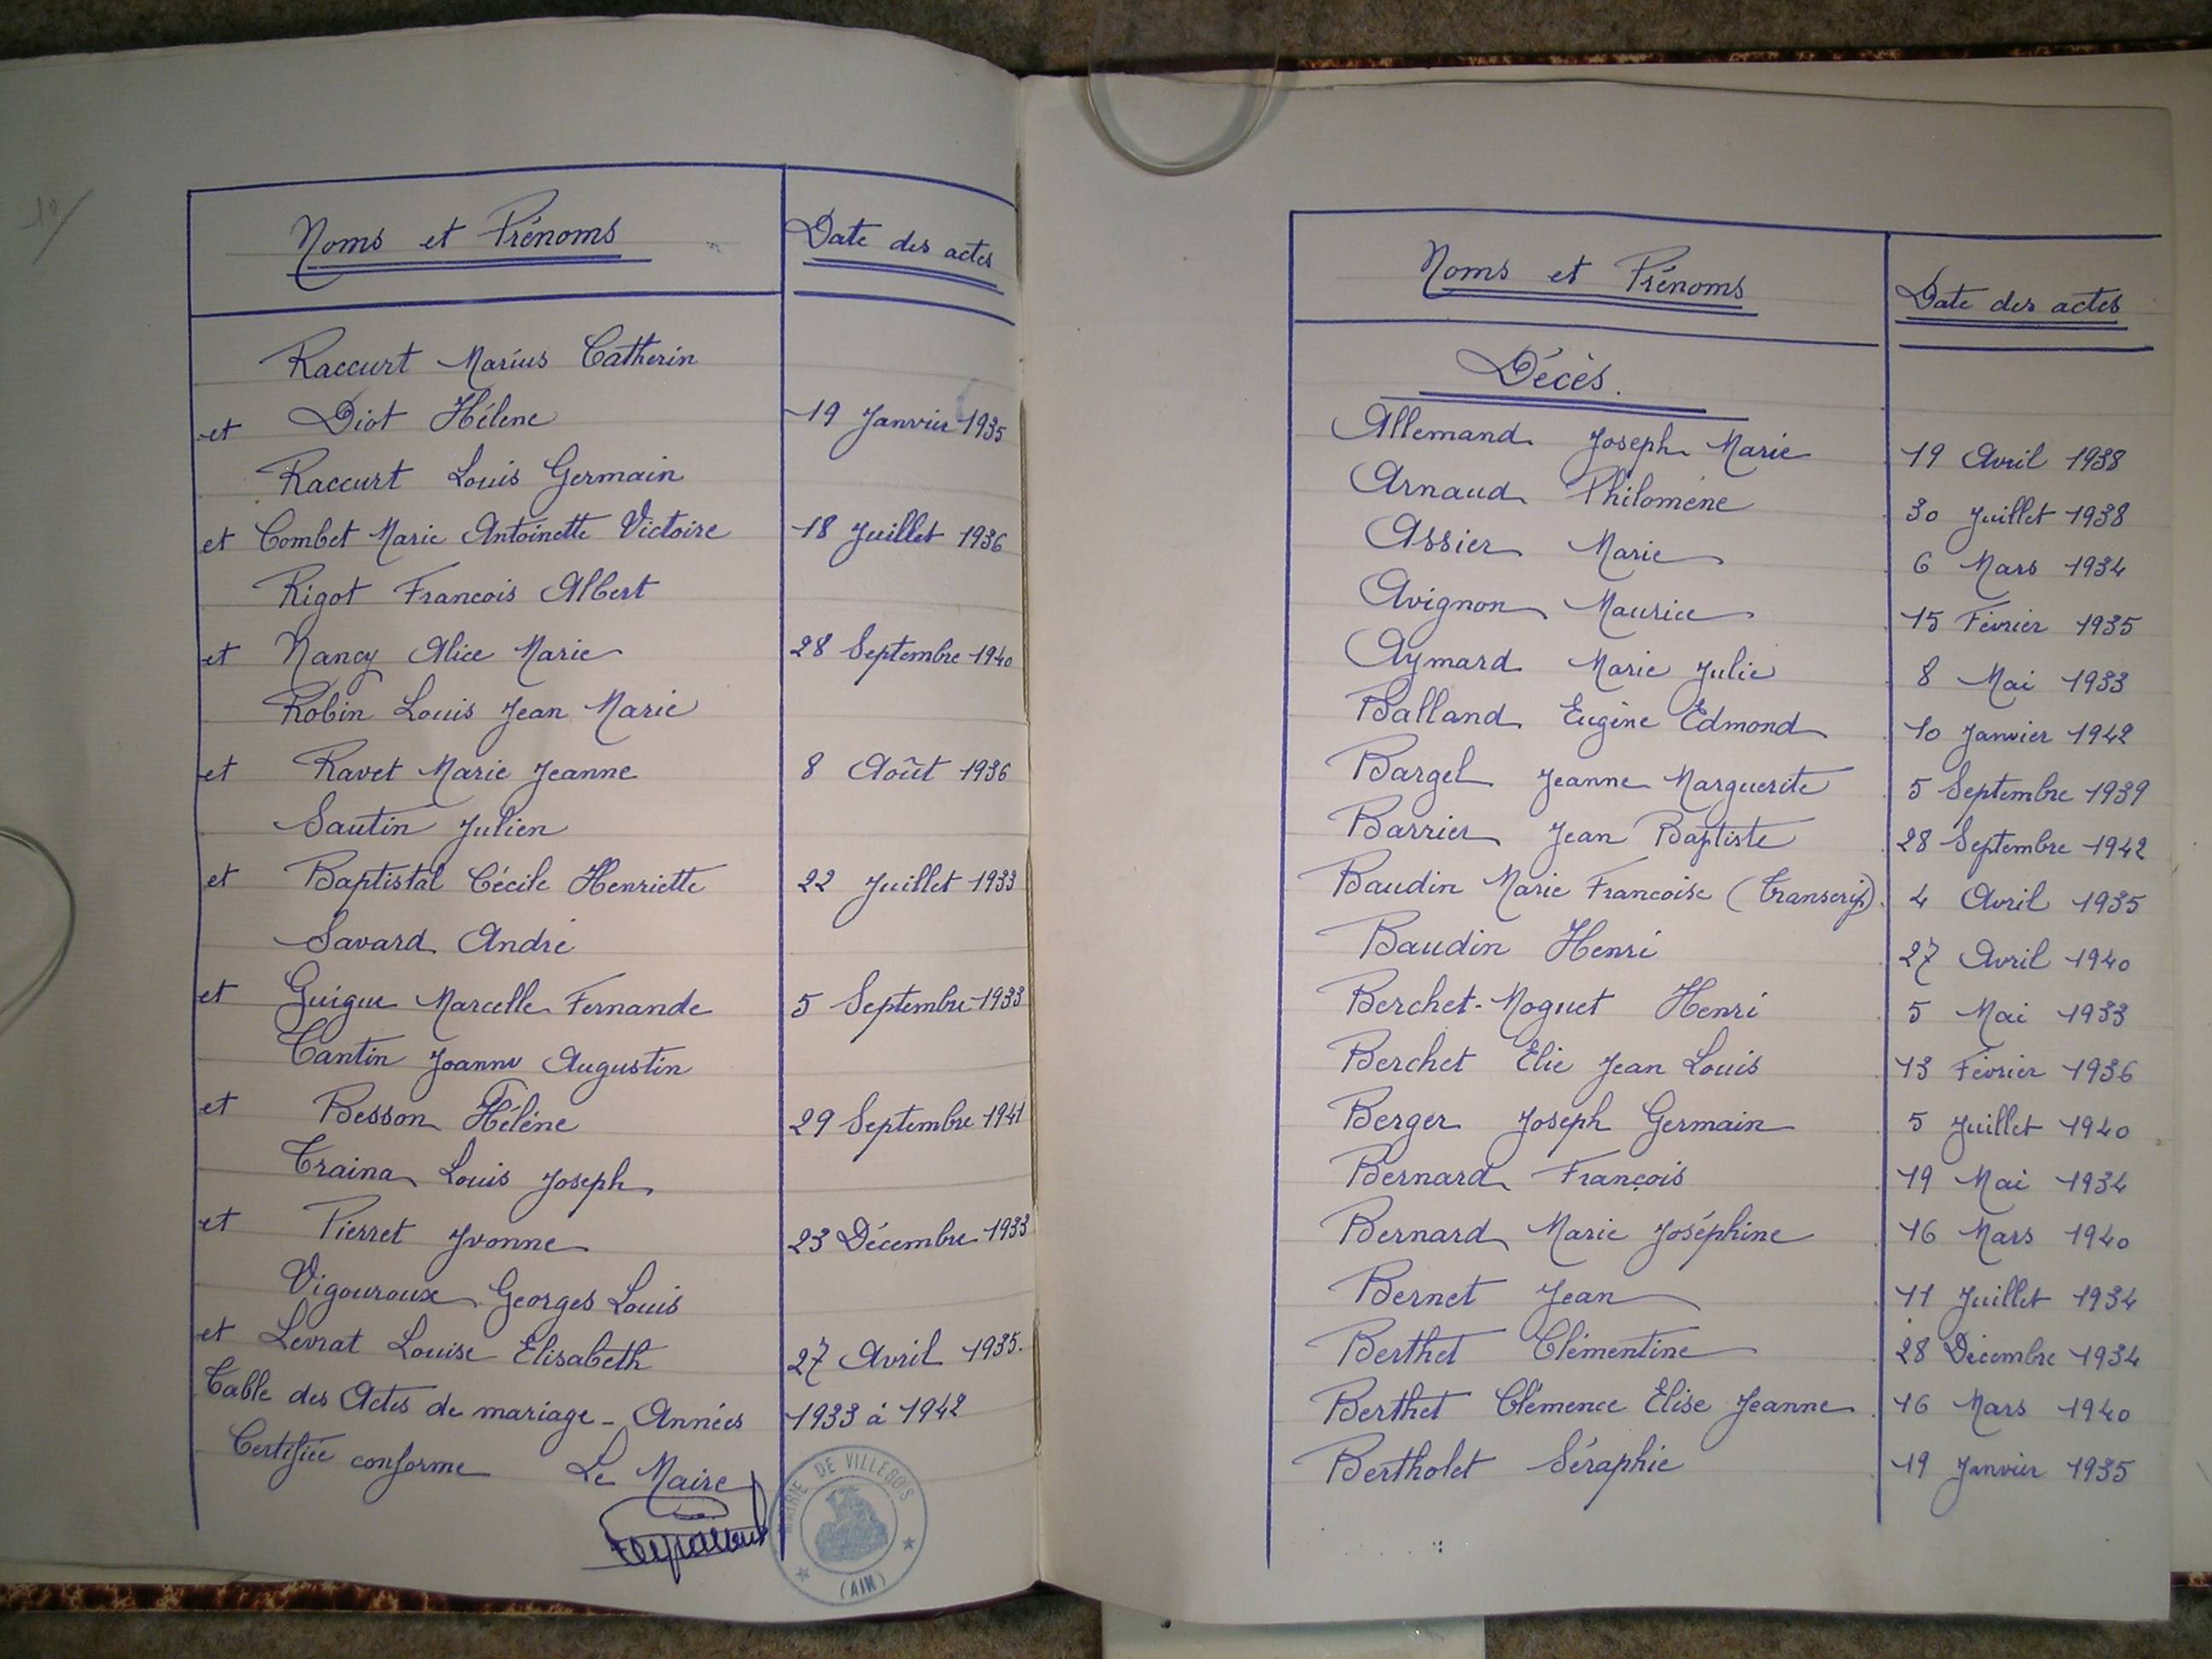 Noms et Prénoms Date des actes
Raccurt Marius Catherin
et Diot Hélene 19 Janvier 1935
Raccurt Louis Germain
et Combet Marie Antoinette Victoire 18 Juillet 1936
Rigot Francois Albert
et Nancy Alice Marie 28 Septembre 1940
Robin Louis Jean Marie
et Ravet Marie Jeanne 8 Août 1936
Sautin Julien
et Baptistal Cécile Henriette 22 Juillet 1933
Savard André
et Guigue Marcelle Fernande 5 Septembre 1933
Tantin Joanny Augustin
et Besson Héléne 29 Septembre 1941
Traina Louis Joseph
et Pierret Yvonne 23 Décembre 1933
Vigouroux Georges Louis
et Levrat Louise Elisabeth 27 Avril 1935.
Table des Actes de mariage - Années 1933 à 1942
Certifiée conforme Le Maire
MAIRIE DE VILLEBOIS
(AIN)
Noms et Prénoms Date des actes
Décès.
Allemand Joseph Marie 19 Avril 1938
Arnaud Philoméne 30 Juillet 1938
Assier Marie 6 Mars 1934
Avignon Maurice 15 Février 1935
Aymard Marie Julie 8 Mai 1933
Balland Eugène Edmond 10 Janvier 1942
Bargel Jeanne Marguerite 5 Septembre 1939
Barrier Jean Baptiste 28 Septembre 1942
Baudin Marie Francoise (Transcrip) 4 Avril 1935
Baudin Henri 27 Avril 1940
Berchet-Moguet Henri 5 Mai 1933
Berchet Elie Jean Louis 13 Février 1936
Berger Joseph Germain 5 Juillet 1940
Bernard François 19 Mai 1934
Bernard Marie Joséphine 16 Mars 1940
Bernet Jean 11 Juillet 1934
Berthet Clémentine 28 Décembre 1934
Berthet Clémence Elise Jeanne 16 Mars 1940
Bertholet Séraphie 19 Janvier 1935